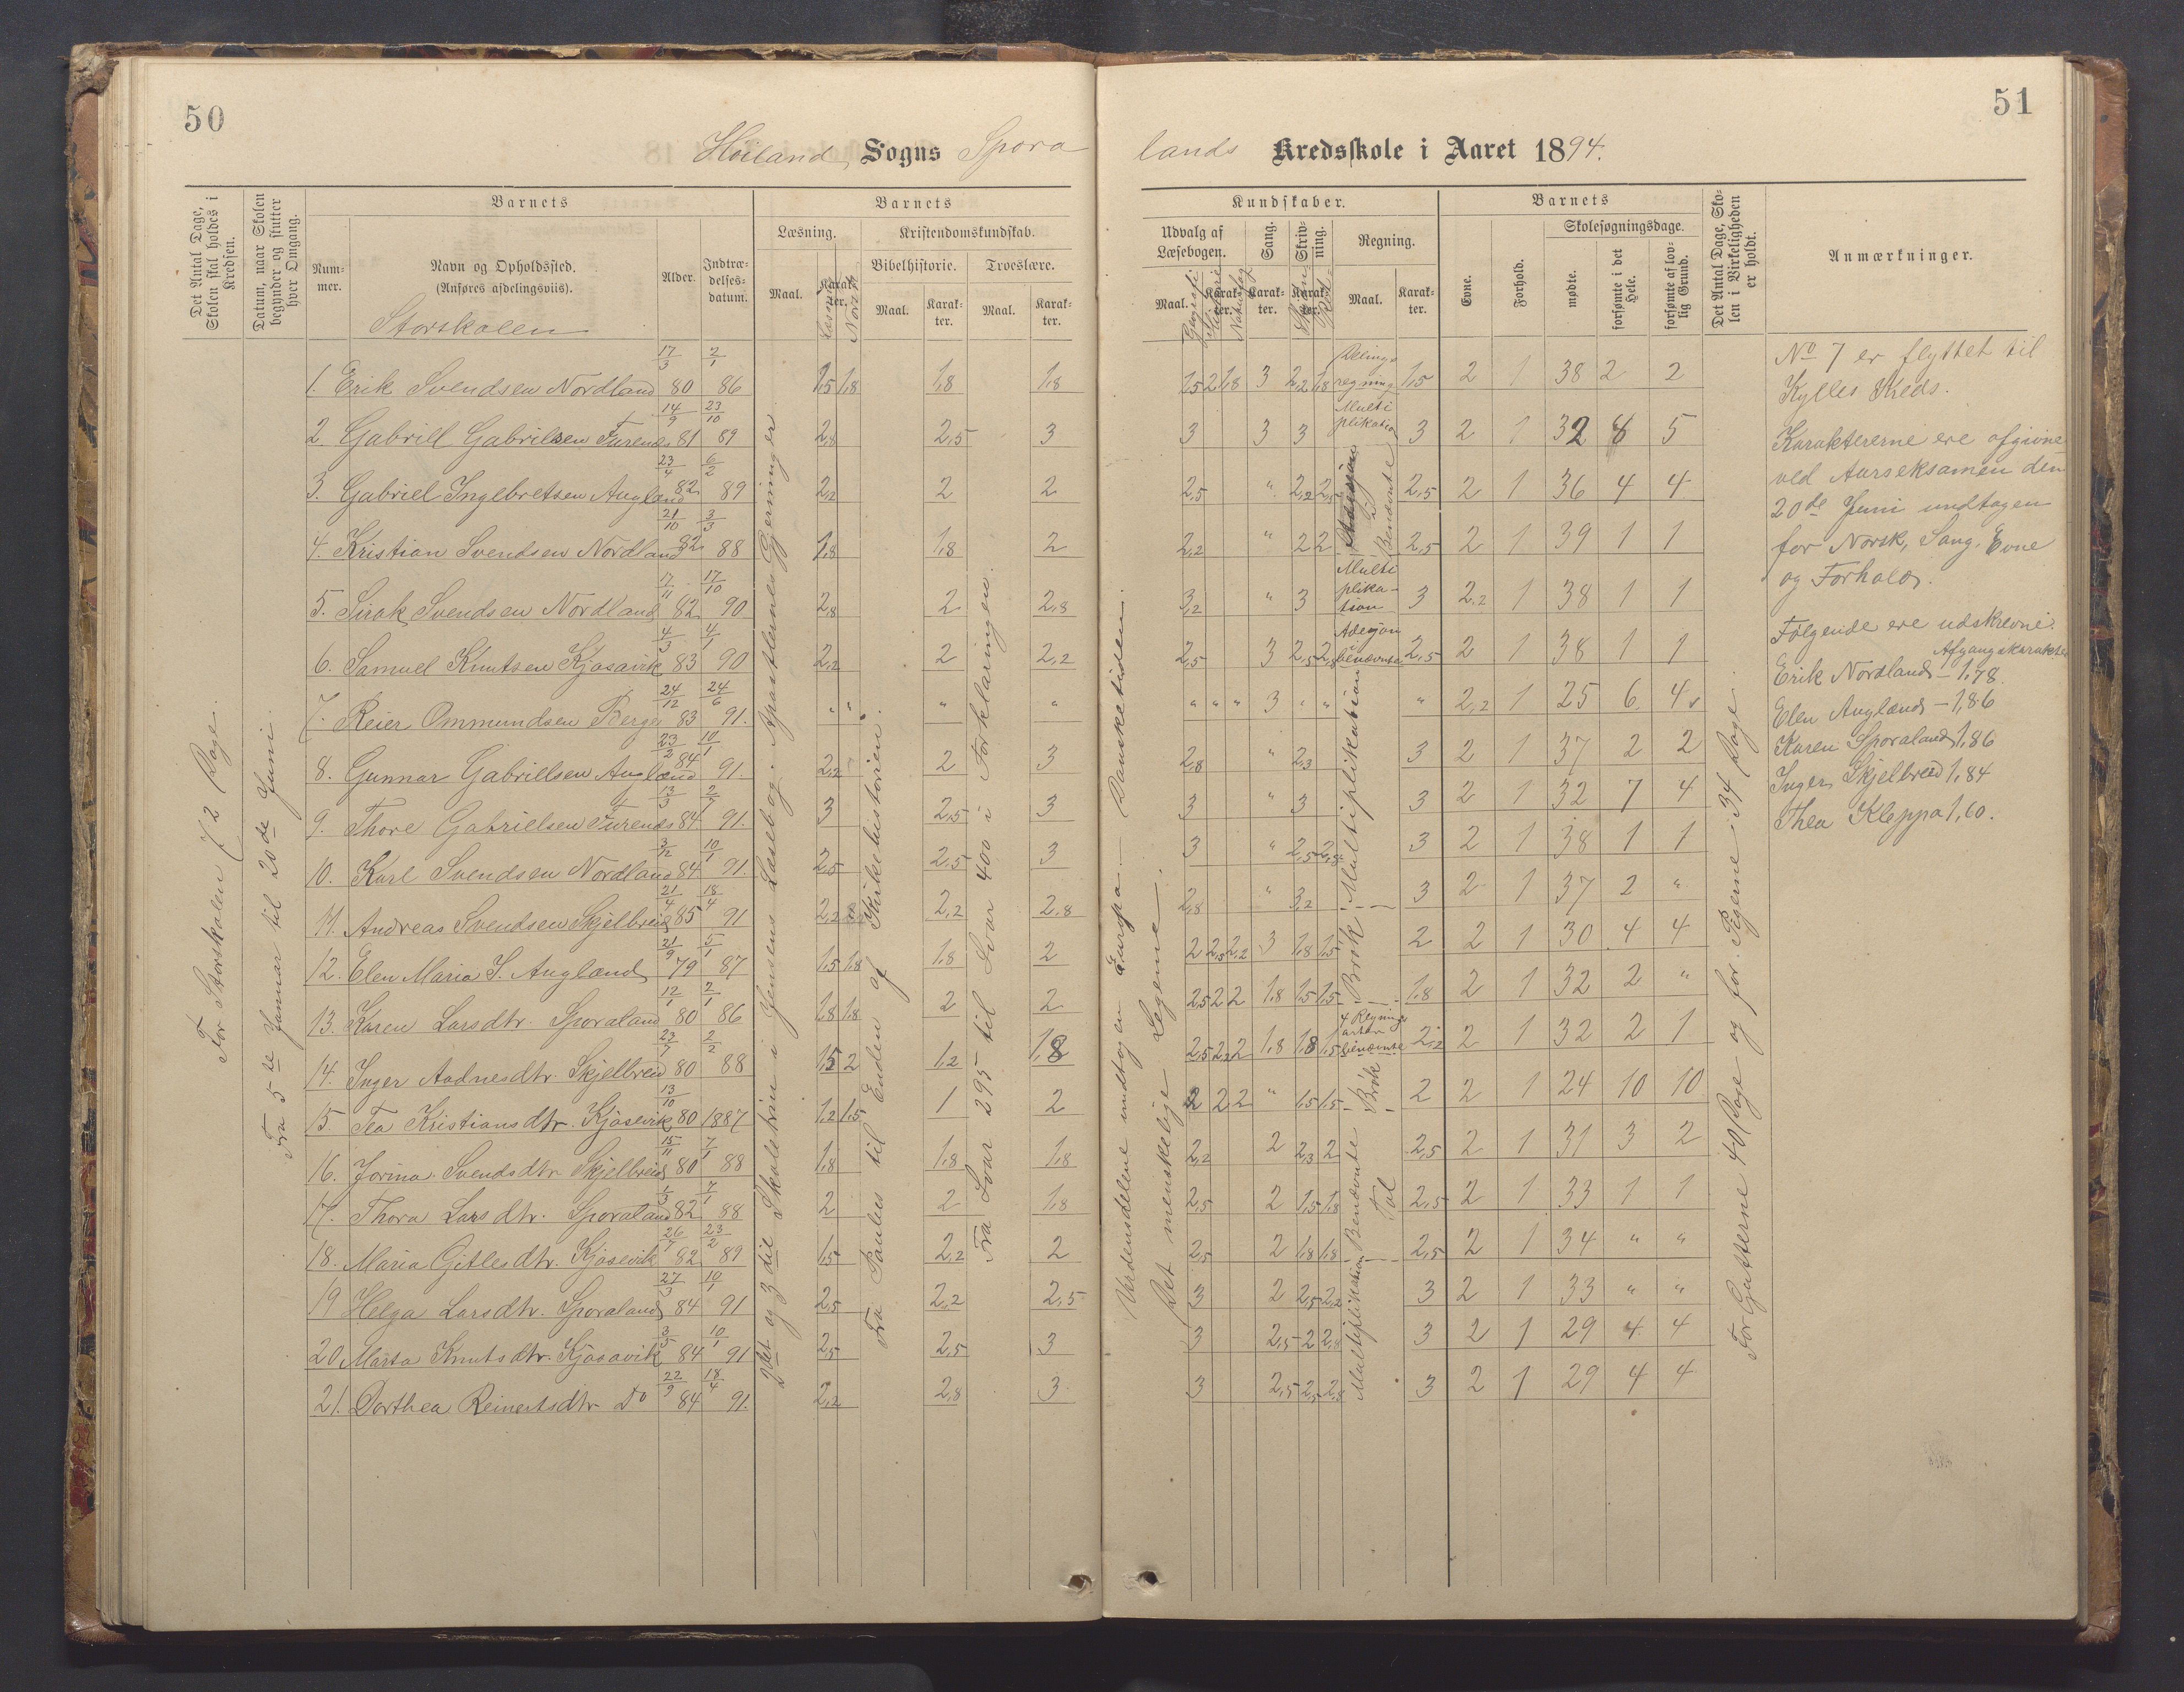 50
51
Höiland Sogns Spora
lands Kredsskole i Aaret 1894.
Det Antal Dage, Skolen skal holdes i Kredsen.
Datum, naar Skolen begynder og slutter hver Omgang.
Barnets
Num-mer.
Navn og Opholdssted.
(Anføres afdelingsviis).
Storskolen
Alder.
Indtræ-delses-datum.
Barnets
Læsning.
Maal.
Karak-ter.
Læsning
Norsk
Kristendomskundskab.
Bibelhistorie.
Maal.
Karak-ter.
Troeslære.
Maal.
Karak-ter.
Kundskaber.
Udvalg af Læsebogen.
Maal.
Karak-ter.
Geografi
Historie
Naturfag
Sang.
Karak-ter.
Skriv-ning.
Karak-ter.
Regning.
Maal.
Karak-ter.
Barnets
Evne.
Forhold.
Skolesøgningsdage.
mødte.
forsømte i det Hele.
forsømte af lov-lig Grund.
Det Antal Dage, Sko-len i Virkeligheden er holdt.
Anmærkninger.
For Storskolen 72 Dage.
Fra 5te Januar til 20de Juni.
2det og 3die Skoletrin i Jensens Læsebog. Apostlernes Gjerninger
Fra Paulus til Enden af Kirkehistorien.
Fra Svar 295 til Svar 400 i Forklaringen.
Verdensdelene undtagen Europa — Dansketiden.
Det menneskelige Legeme.
For Gutterne 40 Dage og for Pigerne 34 Dage.
1. Erik Svendsen Nordland 17/3 80 2/1 86 1,5 1,8 1,8 1,8 1,5 2 1,8 3 2,2 1,8 Delings regning 1,5 2 1 38 2 2
2. Gabriel Gabrielsen Furenes 14/9 81 23/10 89 2,8 2,5 3 3 3 3 Multi plikation 3 2 1 32 8 5
3. Gabriel Ingebretsen Augland 23/4 82 6/2 89 2,2 2 2 2,5 " 2,2 2,5 2,5 2 1 36 4 4
4. Kristian Svendsen Nordland 21/10 82 3/3 88 1,8 1,8 2 2,2 " 2 2 Benævnte 2,5 2 1 39 1 1
5. Sirak Svendsen Nordland 17/11 82 17/10 90 2,8 2 2,8 3,2 " 3 Multi plika-tion 3 2,2 1 38 1 1
6. Samuel Knutsen Kjosavik 4/3 83 4/1 90 2,2 2 2,2 2,5 3 2,5 2,8 Adisjon benævnte 2,5 2 1 38 1 1
7. Reier Ommundsen Berge 24/12 83 24/6 91. " " " " " " " 3 " " " 2,2 1 25 6 4
8. Gunnar Gabrielsen Augland 23/2 84 10/1 91. 2,2 2 3 2,8 " 2,3 Multiplikation 3 2 1 37 2 2
9. Thore Gabrielsen Furenes 13/3 84 2/7 91. 3 2,5 3 3 " 3 3 2 1 32 7 4
10. Karl Svendsen Nordland 3/12 84 10/1 91. 2,5 2,5 3 3 " 2,5 2,8 3 2 1 38 1 1
11. Andreas Svendsen Skjelbreid 21/4 85 18/4 91 2,2 2,2 2,8 2,8 " 3,2 3 2 1 37 2 "
12. Elen Maria S. Augland 21/9 79 5/1 87 1,5 1,8 1,8 2 2 2,5 2,2 3 1,8 1,5 Brök 2 2 1 30 4 4
13. Karen Larsdtr. Sporaland 12/1 80 2/1 86 1,8 1,8 2 2 2,5 2 2 1,8 1,5 1,5 1,8 2 1 32 2 "
14. Inger Aadnesdtr. Skjelbreid 23/7 80 2/2 88 1,5 2 1,2 1,8 2,5 2,2 2 1,8 1,8 1,5 4 Regnings arter benævnte 2,2 2 1 32 2 1
15. Tea Kristiansdtr. Kjosevik 13/10 80 1887 1,2 1,5 1 2 2 2 2 " 1,5 1,5 Brök 2 2 1 24 10 10
16. Jorina Svendsdtr. Skjelbreid 15/11 80 7/1 88 1,8 1,8 1,8 2,2 2 2,3 2 Benævnte Tal 2,5 2 1 31 3 2
17. Thora Larsdtr. Sporaland 1/3 82 7/1 88 2 2 1,8 2,5 2 1,5 1,8 2,5 2 1 33 1 1
18. Maria Gitlesdtr. Kjosevik 26/7 82 23/2 89 1,5 2,2 2 2,5 2 1,8 1,8 2,5 2 1 34 " "
19 Helga Larsdtr. Sporaland 27/3 84 10/1 91 2,5 2,2 2,5 3 2 2,5 2,2 Multiplikation 3 2 1 33 " "
20 Marta Knutsdtr. Kjosavik 3/5 84 10/1 91 2,5 2,5 3 3 2,5 2 2,8 3 2 1 29 4 4
21. Dorthea Reinertsdtr Do 22/9 84 18/4 91. 2,2 2,8 3 3 2,5 2,5 2,8 3 2 1 29 4 4
No 7 er flyttet til
Kylles Kreds.
Karaktererne ere afgivne
ved Aarseksamen den
20de Juni undtagen
for Norsk, Sang, Evne
og Forhold.
Følgende ere udskrevne.
Afgangskarakter
Erik Nordland — 1,78.
Elen Augland — 1,86
Karen Sporaland 1,86
Inger Skjelbreid 1,84
Thea Kleppa 1,60.